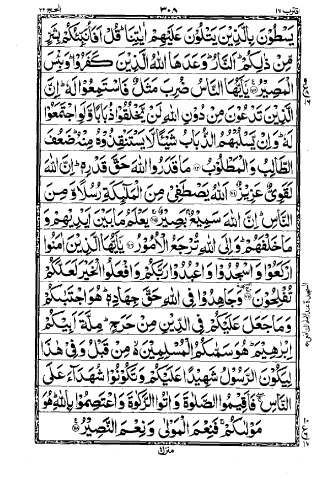 اقترب ١٧ ٣٠٨ الحج ٢٢
يَسْطُوْنَ بِالَّذِيْنَ يَتْلُوْنَ عَلَيْهِمْ اٰيٰتِنَا ؕ قُلْ اَفَاُنَبِّئُكُمْ بِشَرٍّ
مِّنْ ذٰلِكُمْ ؕ اَلنَّارُ ؕ وَعَدَهَا اللّٰهُ الَّذِيْنَ كَفَرُوْا ؕ وَبِئْسَ
الْمَصِيْرُ ۝ يٰۤاَيُّهَا النَّاسُ ضُرِبَ مَثَلٌ فَاسْتَمِعُوْا لَهٗ ؕ اِنَّ
الَّذِيْنَ تَدْعُوْنَ مِنْ دُوْنِ اللّٰهِ لَنْ يَّخْلُقُوْا ذُبَابًا وَّلَوِ اجْتَمَعُوْا
لَهٗ ؕ وَاِنْ يَّسْلُبْهُمُ الذُّبَابُ شَيْـًٔا لَّا يَسْتَنْقِذُوْهُ مِنْهُ ؕ ضَعُفَ
الطَّالِبُ وَالْمَطْلُوْبُ ۝ مَا قَدَرُوا اللّٰهَ حَقَّ قَدْرِهٖ ؕ اِنَّ اللّٰهَ
لَقَوِىٌّ عَزِيْزٌ ۝ اَللّٰهُ يَصْطَفِىْ مِنَ الْمَلٰٓئِكَةِ رُسُلًا وَّمِنَ
النَّاسِ ؕ اِنَّ اللّٰهَ سَمِيْعٌۢ بَصِيْرٌ ۝ يَعْلَمُ مَا بَيْنَ اَيْدِيْهِمْ وَ
مَا خَلْفَهُمْ ؕ وَاِلَى اللّٰهِ تُرْجَعُ الْاُمُوْرُ ۝ يٰۤاَيُّهَا الَّذِيْنَ اٰمَنُوا
ارْكَعُوْا وَاسْجُدُوْا وَاعْبُدُوْا رَبَّكُمْ وَافْعَلُوا الْخَيْرَ لَعَلَّكُمْ
تُفْلِحُوْنَ ۝ وَجَاهِدُوْا فِى اللّٰهِ حَقَّ جِهَادِهٖ ؕ هُوَ اجْتَبٰىكُمْ
وَمَا جَعَلَ عَلَيْكُمْ فِى الدِّيْنِ مِنْ حَرَجٍ ؕ مِلَّةَ اَبِيْكُمْ
اِبْرٰهِيْمَ ؕ هُوَ سَمّٰىكُمُ الْمُسْلِمِيْنَ ۙ مِنْ قَبْلُ وَفِىْ هٰذَا
لِيَكُوْنَ الرَّسُوْلُ شَهِيْدًا عَلَيْكُمْ وَتَكُوْنُوْا شُهَدَآءَ عَلَى
النَّاسِ ۚ فَاَقِيْمُوا الصَّلٰوةَ وَاٰتُوا الزَّكٰوةَ وَاعْتَصِمُوْا بِاللّٰهِ ؕ هُوَ
مَوْلٰىكُمْ ۚ فَنِعْمَ الْمَوْلٰى وَنِعْمَ النَّصِيْرُ ۝
منزل